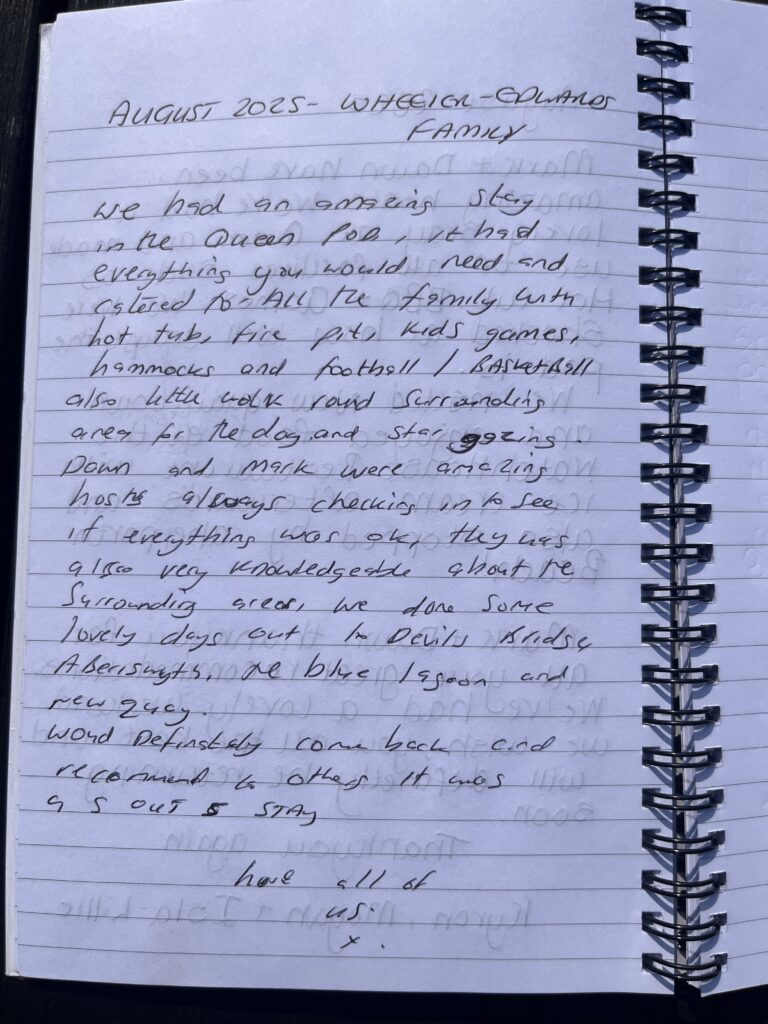 AUGUST 2025- WHEELER-EDWARDS
FAMILY
We had an amazing stay
in the Queen Pod, it had
everything you would need and
catered for All the family with
hot tub, fire pit, kids games,
hammocks and football / BASketBall
also little walk round surrounding
area for the dog and star gazing.
Dawn and Mark were amazing
hosts always checking in to see
if everything was ok, they was
also very knowledgeable about the
surrounding areas, we done some
lovely days out to Devils Bridge
Aberiswyth, the blue lagoon and
new quay.
Woud Definetely come back and
recommend to others it was
a 5 OUT 5 STAY
love all of
us.
x.